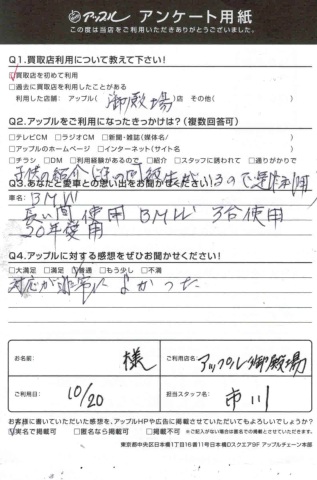 アップル アンケート用紙
この度は当店をご利用いただきありがとうございました。
Q1.買取店利用について教えて下さい!
☑買取店を初めて利用
□過去に買取店を利用したことがある
利用した店舗: アップル( 御殿場 )店 その他( )
Q2.アップルをご利用になったきっかけは?(複数回答可)
□テレビCM □ラジオCM □新聞・雑誌(媒体名/ )
□アップルのホームページ □インターネット(サイト名 )
□チラシ □DM □利用経験があるので □紹介 □スタッフに誘われて □通りがかりで
子供の紹介 ので
Q3.あなたと愛車との想い出をお聞かせください!
車名: BMW
長い間使用 BMW 3台使用
20年使用
Q4.アップルに対する感想をぜひお聞かせください!
□大満足 □満足 ☑普通 □もう少し □不満
対応が非常に よかった
お名前: 様
ご利用店名 アップル御殿場
ご利用日: 10/20
担当スタッフ名: 市川
お客様に書いていただいた感想を、アップルHPや広告に掲載させていただいてもよろしいでしょうか?
☑実名で掲載可 □匿名なら掲載可 □掲載不可 ※ご記入がない場合は匿名での掲載とさせていただきます。
東京都中央区日本橋1丁目16番11号日本橋Dスクエア9F アップルチェーン本部